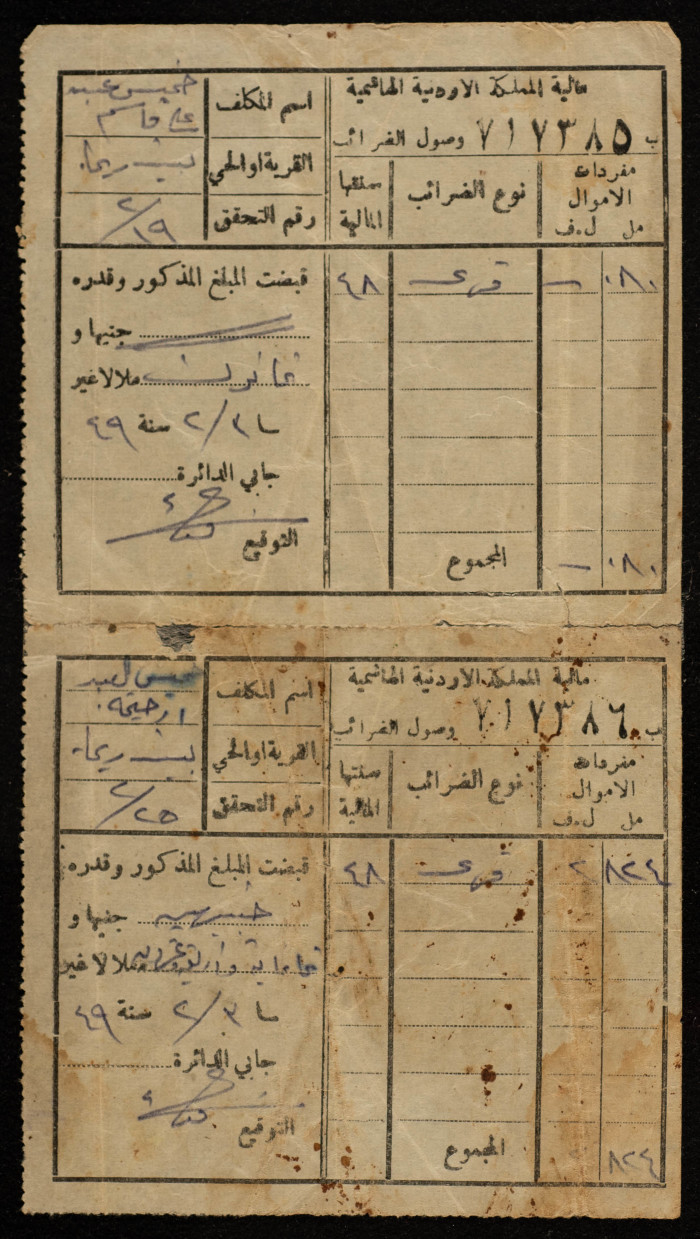 مالية المملكة الاردنية الهاشمية
ب ٧١٧٣٨٥ وصول الضرائب
مفردات الاموال
مل ل.ف
نوع الضرائب
سنتها المالية
اسم المكلف خميس عبد
علي قاسم
القرية او الحي بيت ريما
رقم التحقق ٢/١٩
٠٨٠ — ٤٨
قبضت المبلغ المذكور وقدره
جنيها و
ثمانون ملا لا غير
٣/٢ سنة ٤٩
جابي الدائرة
التوقيع
المجموع ٠٨٠ —
مالية المملكة الاردنية الهاشمية
ب ٧١٧٣٨٦ وصول الضرائب
مفردات الاموال
مل ل.ف
نوع الضرائب
سنتها المالية
اسم المكلف خميس العبد
القرية او الحي بيت ريما
رقم التحقق ٢/٢٥
٨٢٤ ٢ ٤٨
قبضت المبلغ المذكور وقدره
جنيهين جنيها و
ثمانماية واربعة وعشرين ملا لا غير
٣/٢ سنة ٤٩
جابي الدائرة
التوقيع
المجموع ٨٢٤